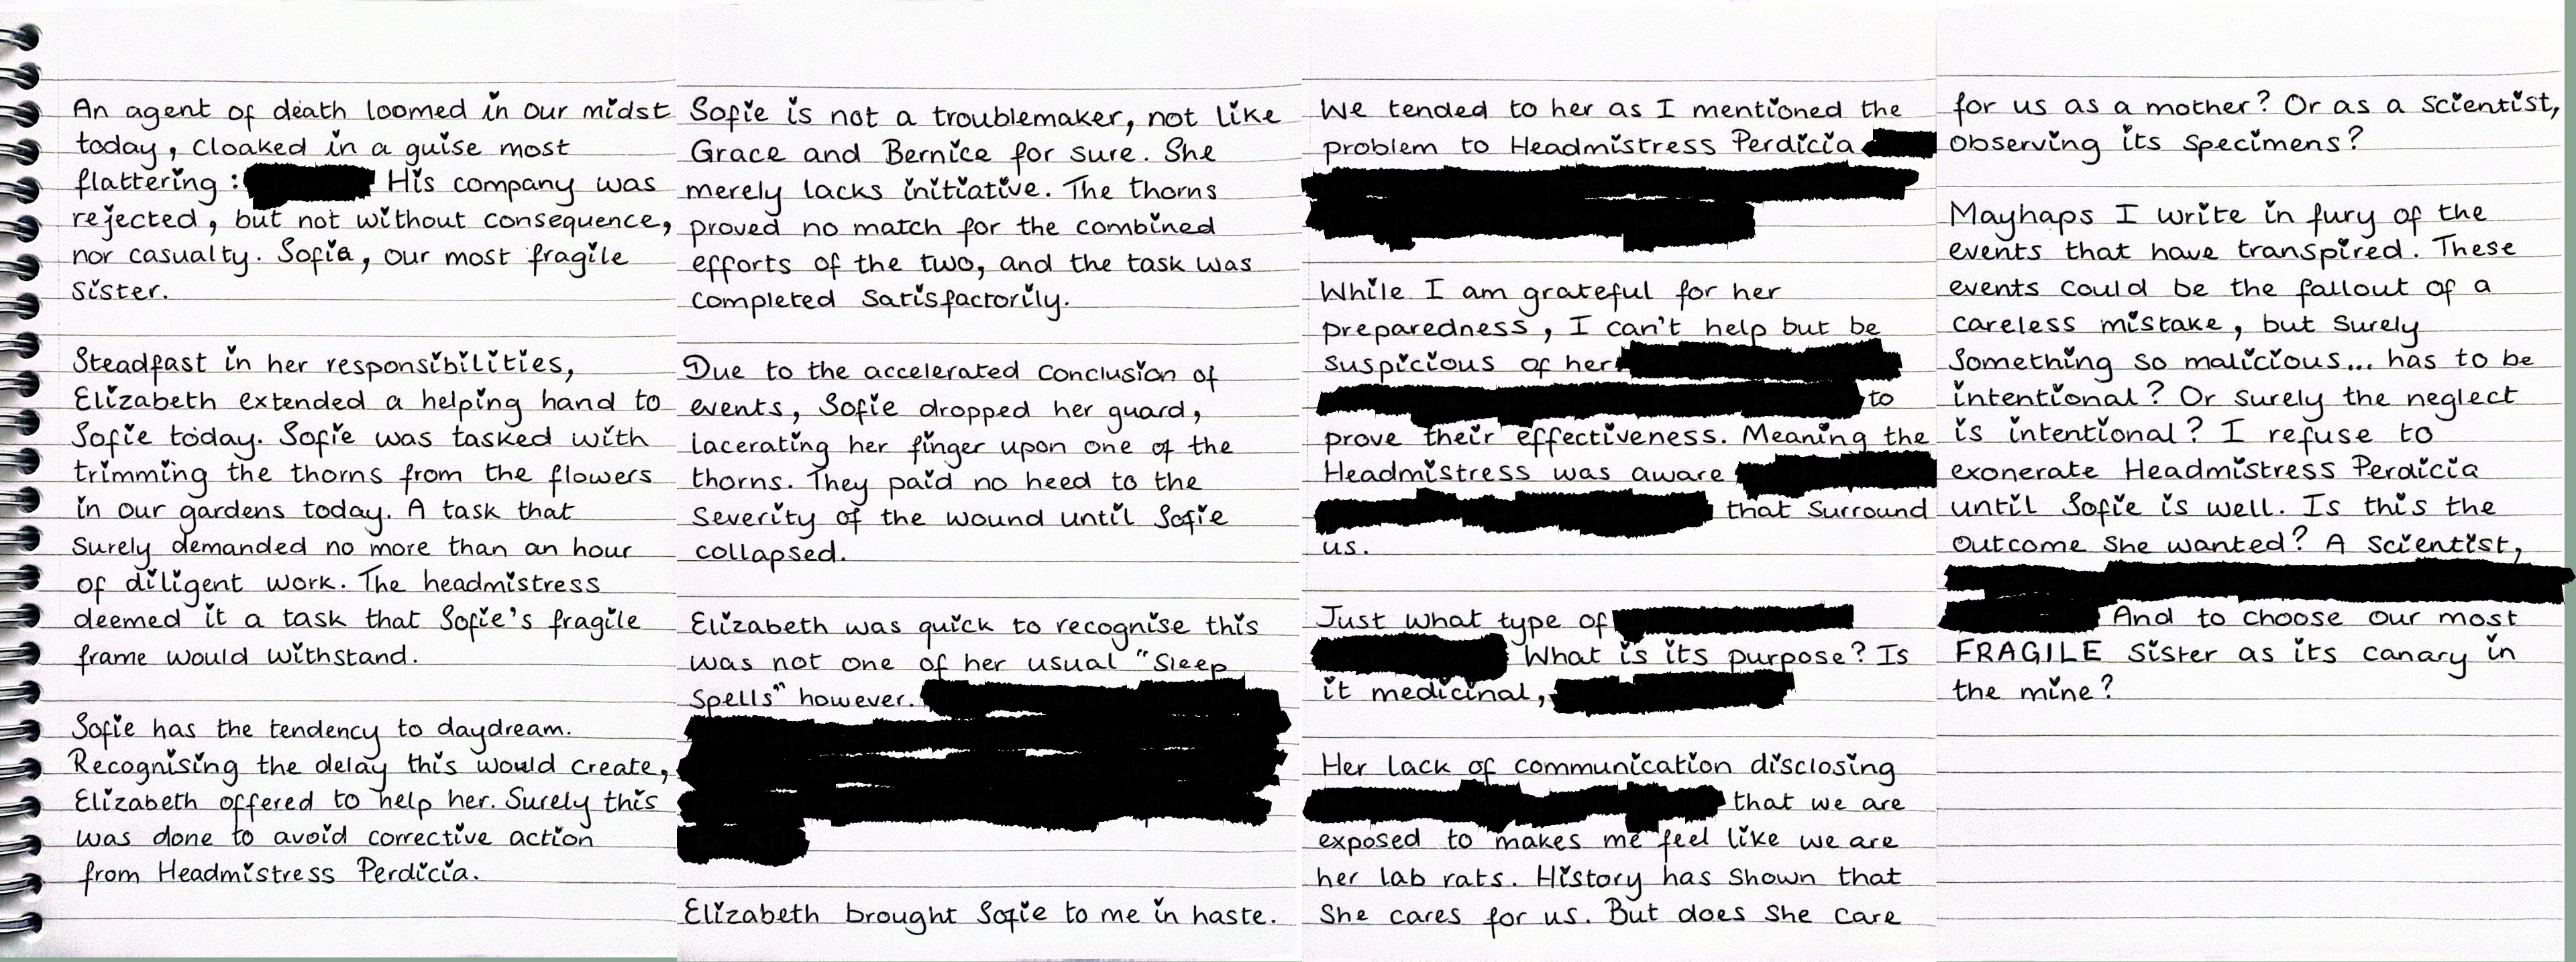 An agent of death loomed in our midst
today, cloaked in a guise most
flattering: His company was
rejected, but not without consequence,
nor casualty. Sofia, our most fragile
sister.
Steadfast in her responsibilities,
Elizabeth extended a helping hand to
Sofie today. Sofie was tasked with
trimming the thorns from the flowers
in our gardens today. A task that
surely demanded no more than an hour
of diligent work. The headmistress
deemed it a task that Sofie's fragile
frame would withstand.
Sofie has the tendency to daydream.
Recognising the delay this would create,
Elizabeth offered to help her. Surely this
was done to avoid corrective action
from Headmistress Perdicia.
Sofie is not a troublemaker, not like
Grace and Bernice for sure. She
merely lacks initiative. The thorns
proved no match for the combined
efforts of the two, and the task was
completed satisfactorily.
Due to the accelerated conclusion of
events, Sofie dropped her guard,
lacerating her finger upon one of the
thorns. They paid no heed to the
severity of the wound until Sofie
collapsed.
Elizabeth was quick to recognise this
was not one of her usual "Sleep
Spells" however.
Elizabeth brought Sofie to me in haste.
We tended to her as I mentioned the
problem to Headmistress Perdicia
While I am grateful for her
preparedness, I can't help but be
suspicious of her
to
prove their effectiveness. Meaning the
Headmistress was aware
that surround
us.
Just what type of
What is its purpose? Is
it medicinal,
Her lack of communication disclosing
that we are
exposed to makes me feel like we are
her lab rats. History has shown that
she cares for us. But does she care
for us as a mother? Or as a scientist,
observing its specimens?
Mayhaps I write in fury of the
events that have transpired. These
events could be the fallout of a
careless mistake, but surely
something so malicious... has to be
intentional? Or surely the neglect
is intentional? I refuse to
exonerate Headmistress Perdicia
until Sofie is well. Is this the
outcome she wanted? A scientist,
And to choose our most
FRAGILE sister as its canary in
the mine?